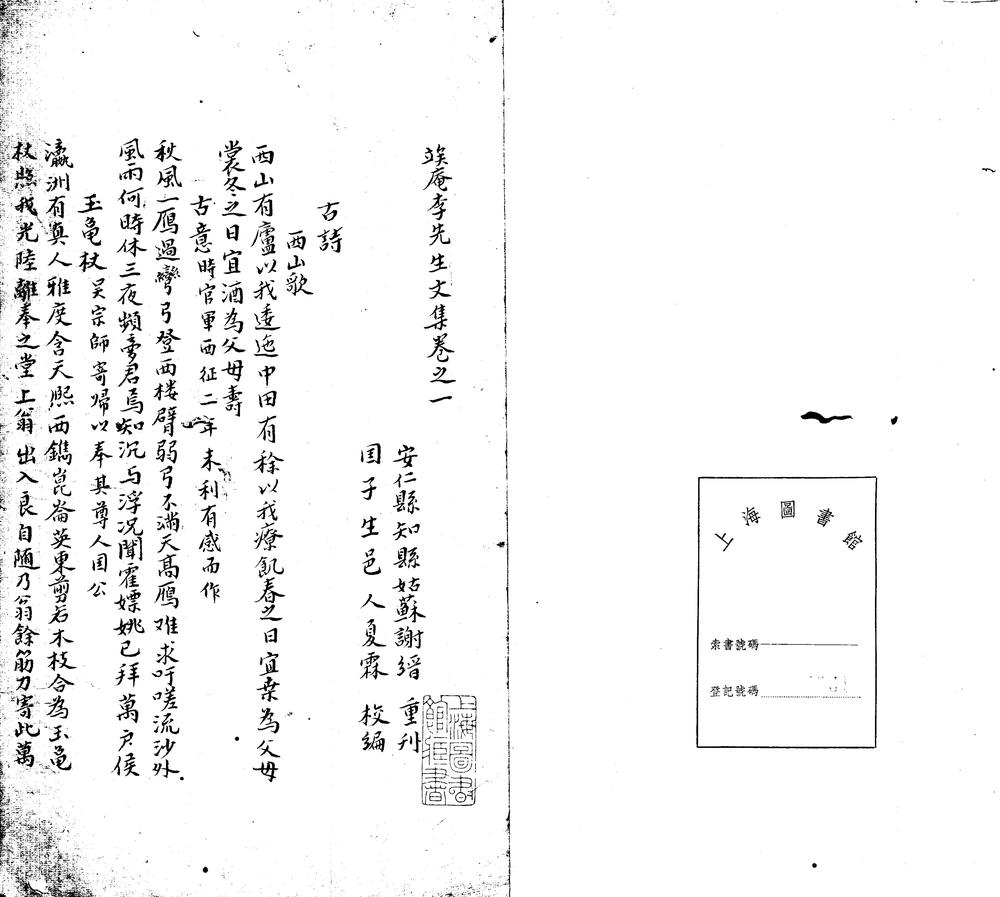 上海圖書館
索書號碼
登記號碼
俟庵李先生文集卷之一
安仁縣知縣姑蘇謝縉 重刋
囯子生邑人夏霖 校編
古詩
西山歌
西山有廬以我逶迤中田有稌以我療飢春之日宜桒為父母
裳冬之日宜酒為父母壽
古意時官軍西征二年未利有感而作
秋風一鴈過彎弓登西楼臂弱弓不滿天髙鴈难求吁嗟流沙外
風雨何時休三夜頻夣君焉知沉与浮况聞霍嫖姚已拜萬户侯
玉黾杖吴宗師寄歸以奉其尊人囯公
瀛洲有真人雅度含天熈西鐫崑崙英東剪若木枝合為玉黾
杖照我光陸離奉之堂上翁出入良自随乃翁餘筋力寄此萬
上海圖書館藏書